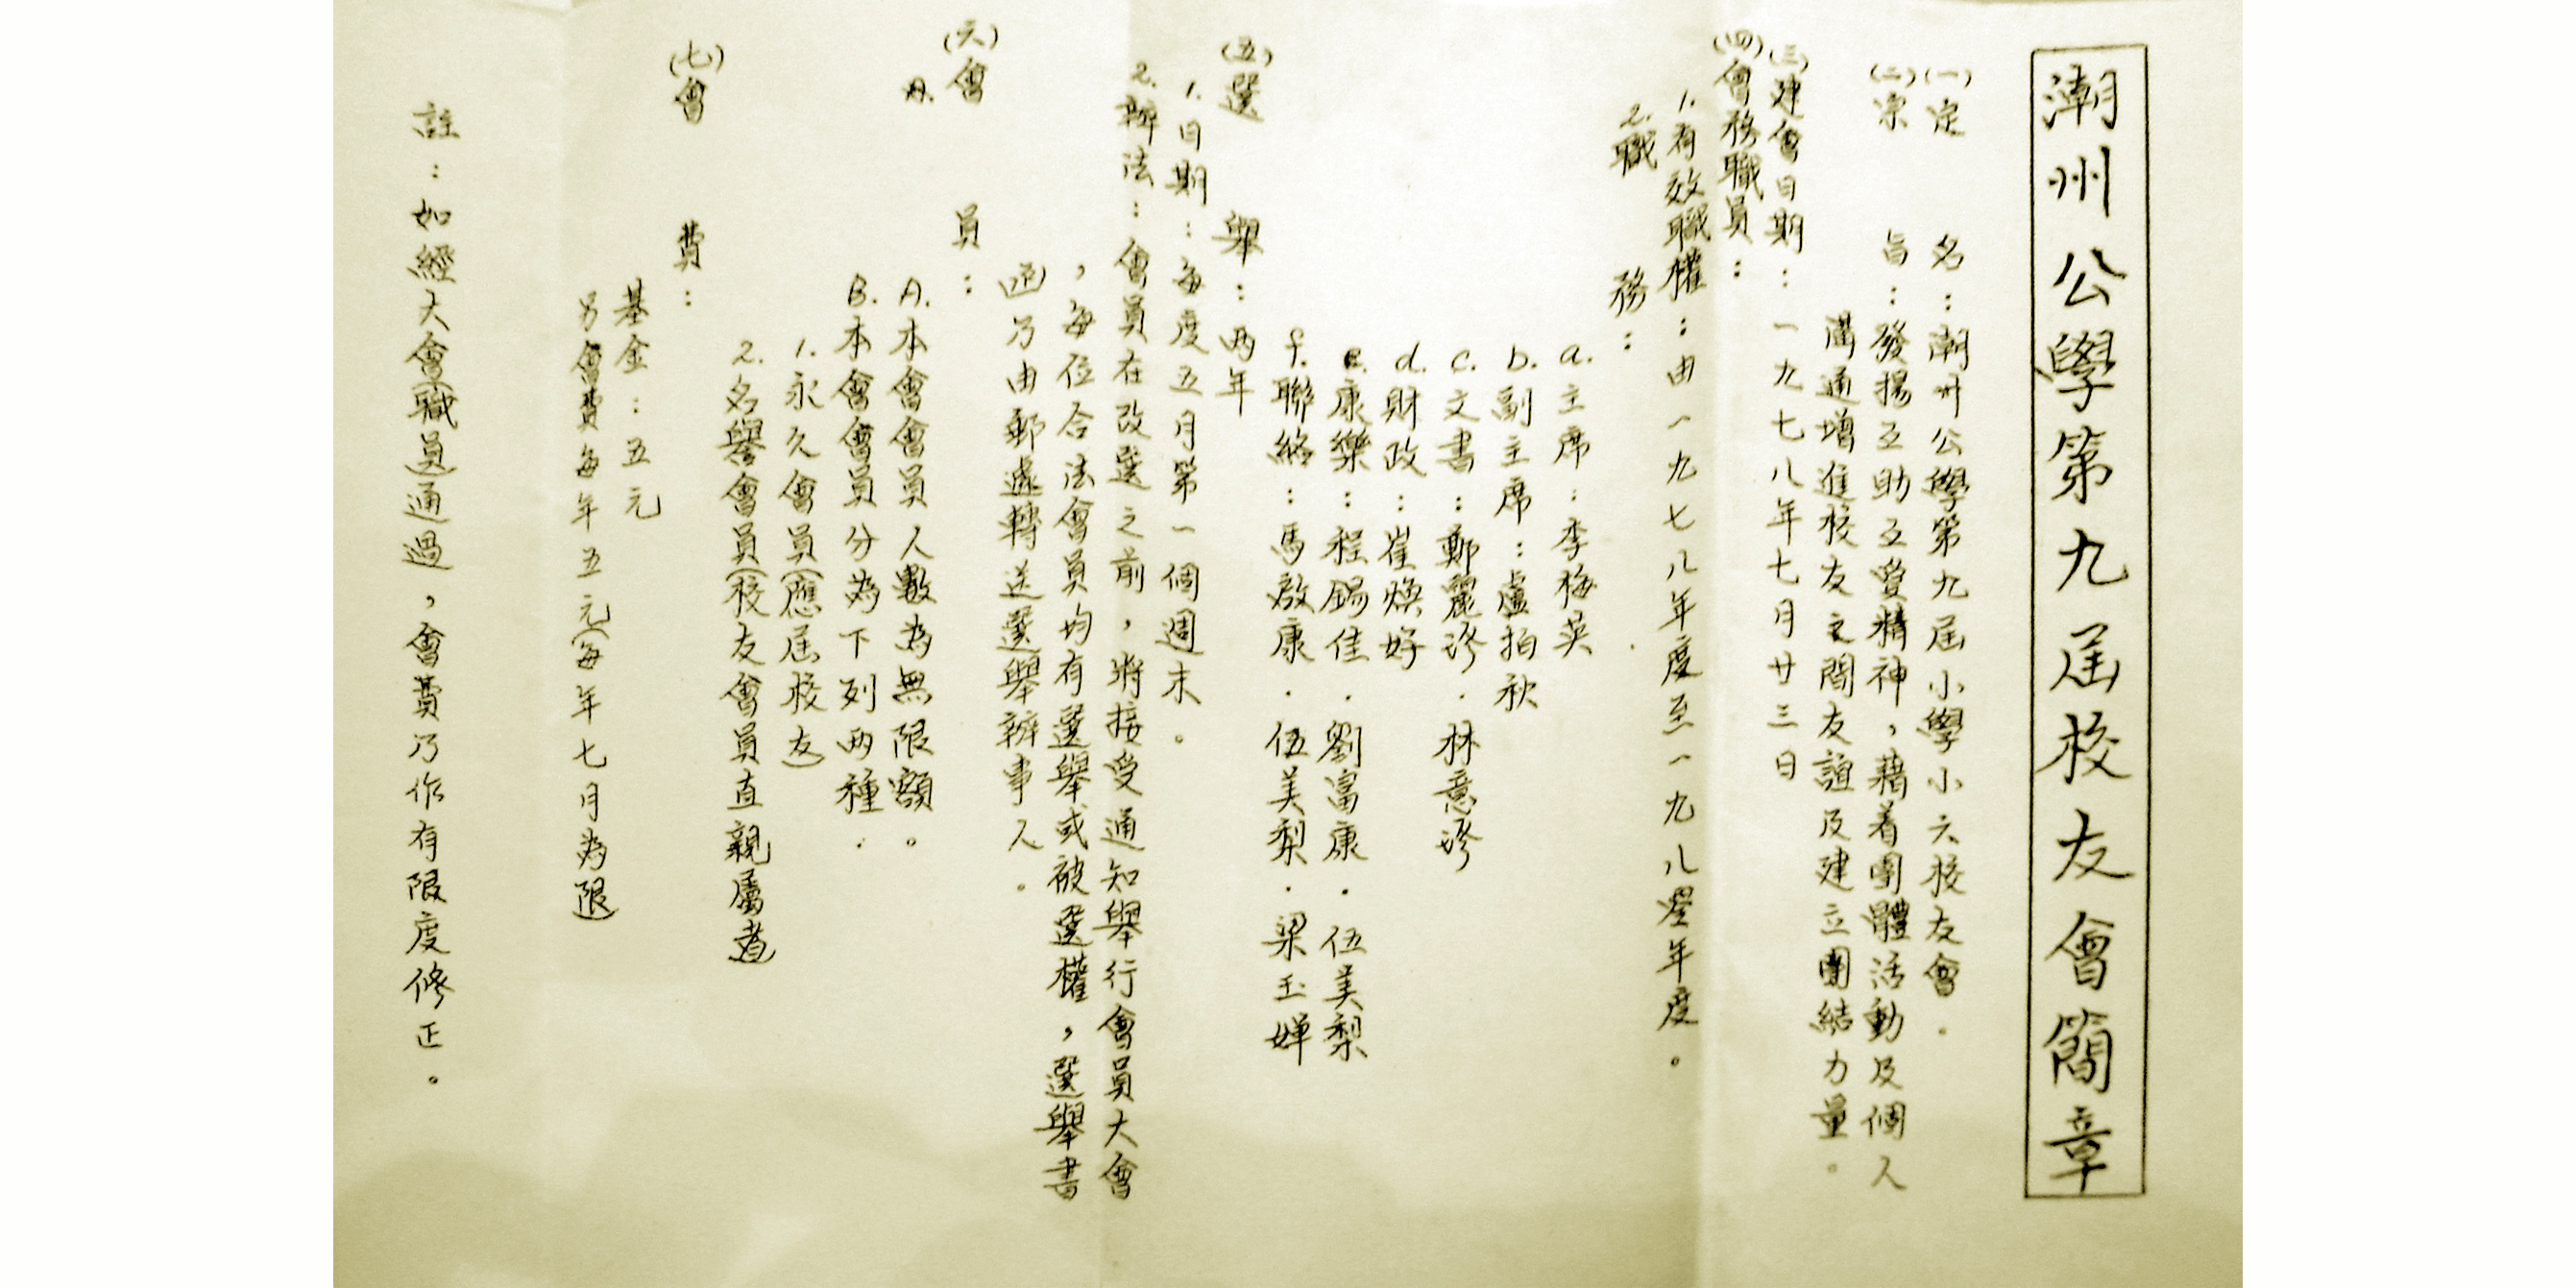 潮州公學第九屆校友會簡章
(一)定名：潮州公學第九屆小學小六校友會.
(二)宗旨：發揚互助互愛精神，藉着團體活動及個人
溝通增進校友之間友誼及建立團結力量。
(三)建會日期：一九七八年七月廿三日
(四)會務職員：
1.有效職權：由一九七八年度至一九八零年度。
2.職務：
a.主席：李梅英
b.副主席：盧拍秋
c.文書：鄭麗珍.林意珍
d.財政：崔煥好
e.康樂：程錫佳.劉富康.伍美梨
f.聯絡：馬啟康.伍美梨.梁玉嬋
(五)選舉：两年
1.日期：每度五月第一個週末。
2.辦法：會員在改選之前，將接受通知舉行會員大會
，每位合法會員均有選舉或被選權，選舉書
函乃由郵遞轉送選舉辦事人。
(六)會員：
A.本會會員人數為無限額。
B.本會會員分為下列两種.
1.永久會員(應屆校友)
2.名譽會員(校友會員直親屬者)
(七)會費：
基金：五元
另會費每年五元(每年七月為限)
註：如經大會(職員)通過，會費乃作有限度修正。